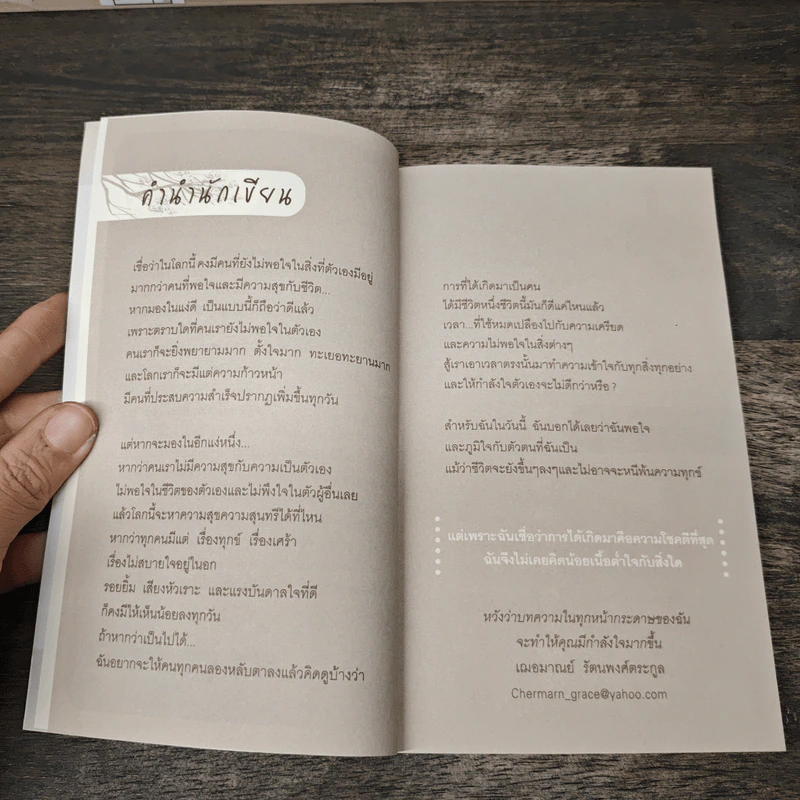 คำนำนักเขียน
เชื่อว่าในโลกนี้ คงมีคนที่ยังไม่พอใจในสิ่งที่ตัวเองมีอยู่
มากกว่าคนที่พอใจและมีความสุขกับชีวิต...
หากมองในแง่ดี เป็นแบบนี้ก็ถือว่าดีแล้ว
เพราะตราบใดที่คนเรายังไม่พอใจในตัวเอง
คนเราก็จะยิ่งพยายามมาก ตั้งใจมาก ทะเยอทะยานมาก
และโลกเราก็จะมีแต่ความก้าวหน้า
มีคนที่ประสบความสำเร็จปรากฏเพิ่มขึ้นทุกวัน
แต่หากจะมองในอีกแง่หนึ่ง...
หากว่าคนเราไม่มีความสุขกับความเป็นตัวเอง
ไม่พอใจในชีวิตของตัวเองและไม่พึงใจในตัวผู้อื่นเลย
แล้วโลกนี้จะหาความสุขความสุนทรีได้ที่ไหน
หากว่าทุกคนมีแต่ เรื่องทุกข์ เรื่องเศร้า
เรื่องไม่สบายใจอยู่ในอก
รอยยิ้ม เสียงหัวเราะ และแรงบันดาลใจที่ดี
ก็คงมีให้เห็นน้อยลงทุกวัน
ถ้าหากว่าเป็นไปได้...
ฉันอยากจะให้คนทุกคนลองหลับตาลงแล้วคิดดูบ้างว่า
การที่ได้เกิดมาเป็นคน
ได้มีชีวิตหนึ่งชีวิตนี้มันก็ดีแค่ไหนแล้ว
เวลา...ที่ใช้หมดเปลืองไปกับความเครียด
และความไม่พอใจในสิ่งต่างๆ
สู้เราเอาเวลาตรงนั้นมาทำความเข้าใจกับทุกสิ่งทุกอย่าง
และให้กำลังใจตัวเองจะไม่ดีกว่าหรือ?
สำหรับฉันในวันนี้ ฉันบอกได้เลยว่าฉันพอใจ
และภูมิใจกับตัวตนที่ฉันเป็น
แม้ว่าชีวิตจะยังขึ้นๆลงๆและไม่อาจจะหนีพ้นความทุกข์
แต่เพราะฉันเชื่อว่าการได้เกิดมาคือความโชคดีที่สุด
ฉันจึงไม่เคยคิดน้อยเนื้อต่ำใจกับสิ่งใด
หวังว่าบทความในทุกหน้ากระดาษของฉัน
จะทำให้คุณมีกำลังใจมากขึ้น
เฌอมาณย์ รัตนพงศ์ตระกูล
Chermarn_grace@yahoo.com